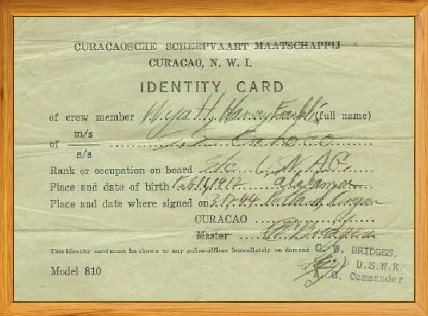 CURACAOSCHE SCHEEPVAART MAATSCHAPPIJ
CURACAO, N. W. I.
IDENTITY CARD
of crew member Wyatt, Harvey Franklin (full name)
of m/s
s/s
Rank or occupation on board S/c U.S.N.A.G.
Place and date of birth 1912 Alabama
Place and date where signed on Portland Oregon
CURACAO
Master
This identity card must be shown to any police-officer immediately on demand
C. W. BRIDGES,
U.S.N.R.
Commander
Model 810